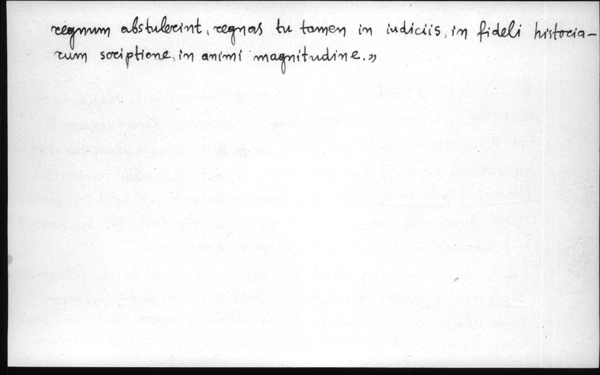 regnum abstulerint, regnas tu tamen in iudiciis, in fideli historia-
rum scriptione, in animi magnitudine.»